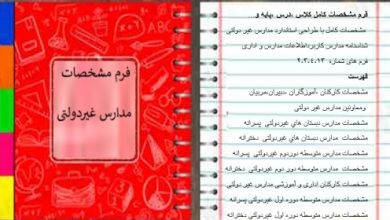 فرم مشخصات
مدارس غیردولتی
فرم مشخصات کامل کلاس ،درس ،پایه و
مشخصات کامل با طراحی استاندارد مدارس غیر دولتی
شناسنامه مدارس کاربرد:اطلاعات مدارس و اداری
فرم های شماره: ۹،۳،۴،۰۱۳
فهرست
مشخصات کارکنان ،آموزگاران ،دبیران،مربیان
ومعاونین مدارس غیر دولتی
مشخصات مدارس دبستان های غیردولتی پسرانه
مشخصات مدارس دبستان های غیردولتی دخترانه
مشخصات مدارس متوسطه دوردوم غیردولتی پسرانه
مشخصات مدارس متوسطه دور دوم غیردولتی دخترانه
مشخصات کارکنان اداری و آموزشی مدارس غیر دولتی
مشخصات مدارس متوسطه دوره اول غیردولتی پسرانه
مشخصات مدارس متوسطه دوره اول غیردولتی دخترانه